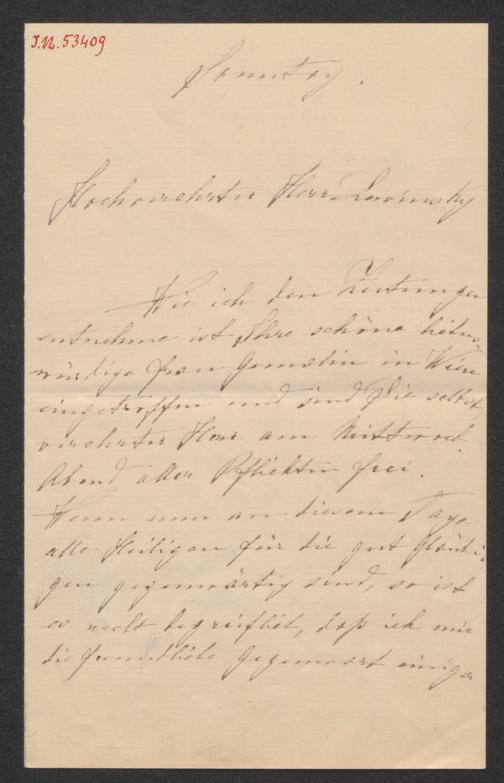 J.N. 53409
Sonntag.
Hochverehrter Herr Lewinsky
Wie ich den Zeitungen
entnehme ist Ihre schöne liebens-
würdige Frau Gemalin in Wien
eingetroffen und sind Sie selbst,
verehrter Herr am Mittwoch
Abend aller Pflichten frei.
Wenn nun an diesem Tage
alle Heiligen für die gut Gläubi-
gen gegenwärtig sind, so ist
es recht begreiflich, daß ich mir
die freundliche Gegenwart einiger